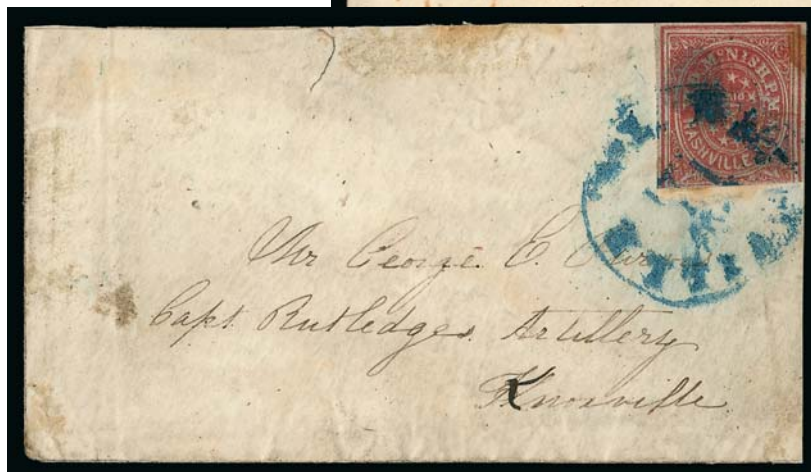 McNISH P.M.
NASHVILLE
VILLE
Mr George E.
Capt. Rutledges Artillery
Knoxville